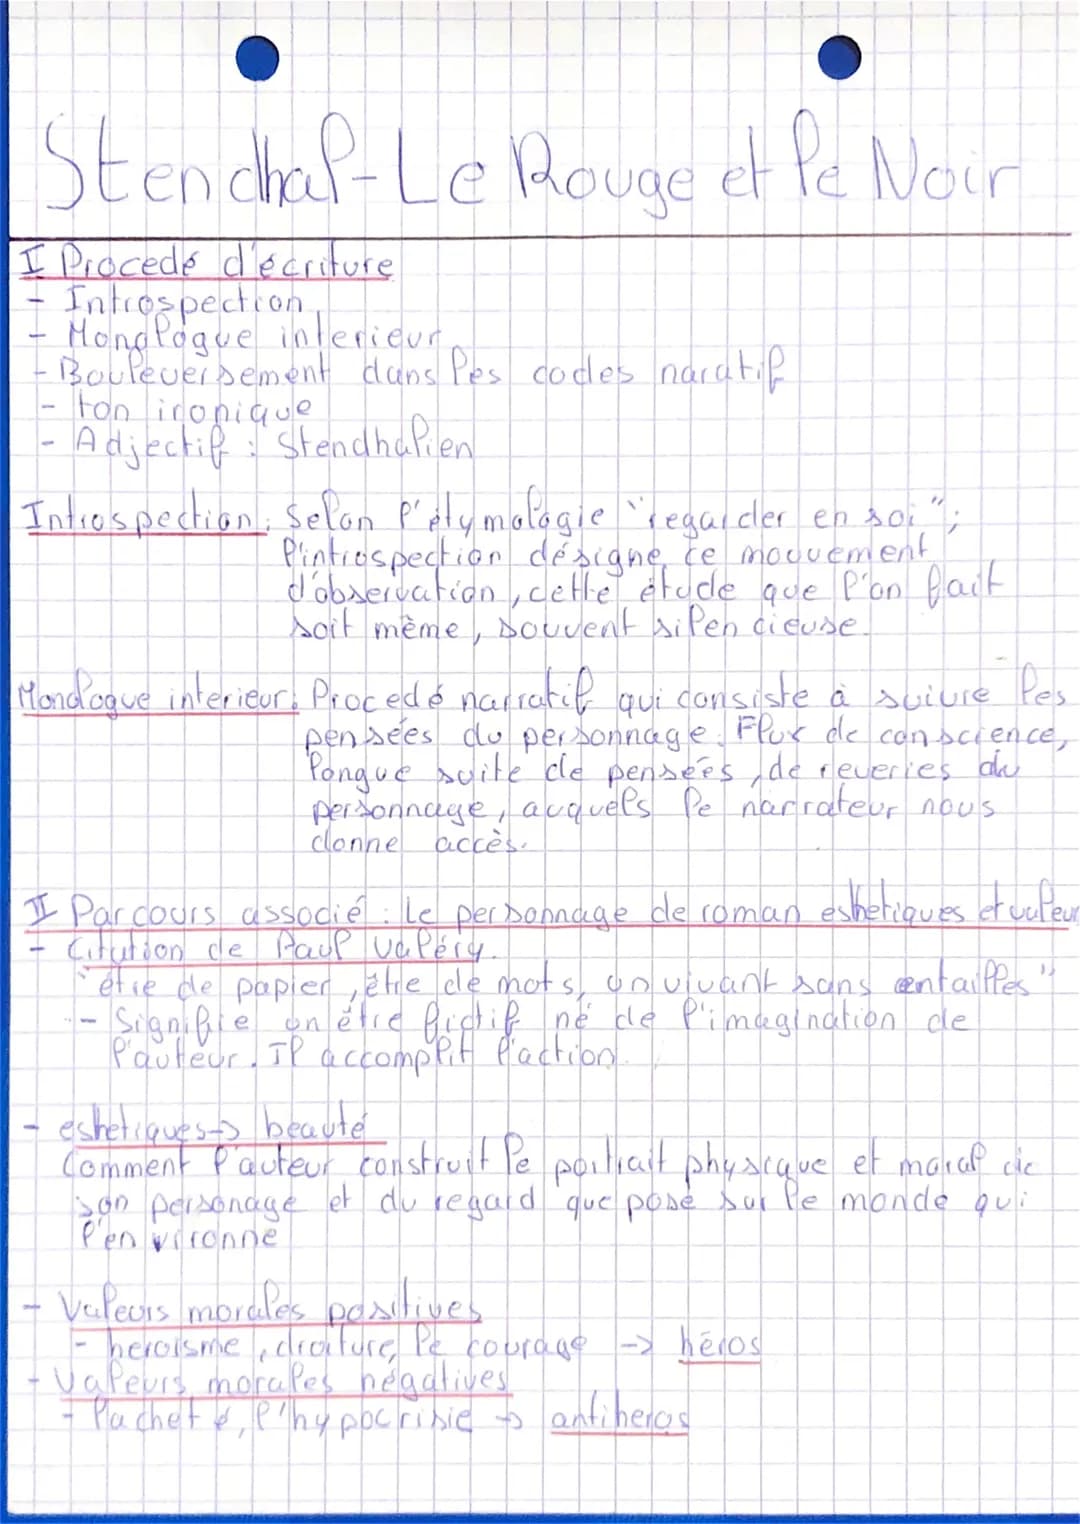 Stendhal-Le Rouge et le Noir
I Procedé d'écriture
- Introspection
- Monologue interieur
- Bouleversement dans les codes naratif
- ton ironique
- Adjectif : Stendhalien
Introspection : Selon l'étymologie "regarder en soi" ;
l'introspection désigne ce mouvement
d'observation, cette étude que l'on fait
soit même, souvent silencieuse.
Monologue interieur : Procedé narratif qui consiste à suivre les
pensées du personnage. Flux de conscience,
longue suite de pensées, de reveries du
personnage, auquels le narrateur nous
donne accès.
II Parcours associé : Le personnage de roman esthetiques et valeur
- Citation de Paul Valéry.
"être de papier, être de mots, un vivant sans entailles"
- Signifie un être fictif né de l'imagination de
l'auteur. Il accomplit l'action.
- eshetiques → beauté
Comment l'auteur construit le portrait physique et moral de
son personage et du regard que posé sur le monde qui
l'environne
- Valeurs morales positives
- heroisme, droiture, le courage → héros
- Valeurs morales négatives
- lacheté, l'hypocrisie → antiheros